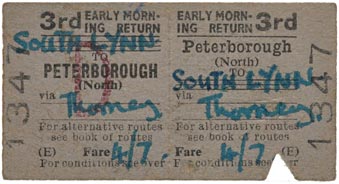 3rd EARLY MORN-
ING RETURN
SOUTH LYNN
TO
PETERBOROUGH
(North)
via Thorney
For alternative routes
see book of routes
(E) Fare 4/7
For conditions see over
1347
D
EARLY MOR- 3rd
ING RETURN
Peterborough
(North)
TO
SOUTH LYNN
via Thorney
For alternative routes
see book of routes
(E) Fare 4/7
For conditions see over
1347